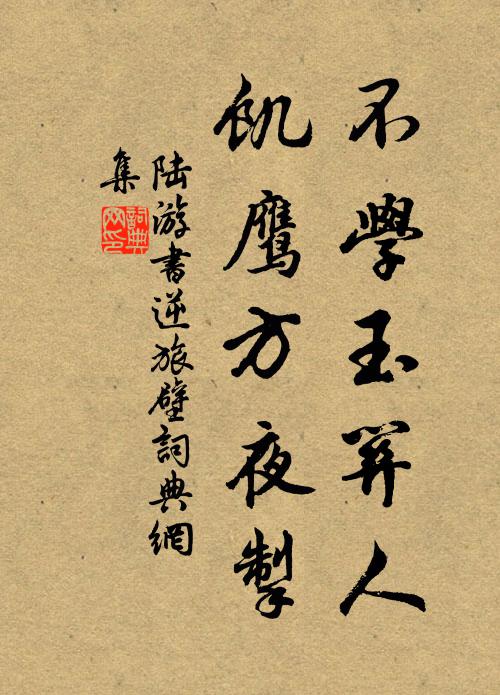 不學玉笄人
飢鷹方夜掣
陸游書逆旅壁詞典網
集
詞典网印